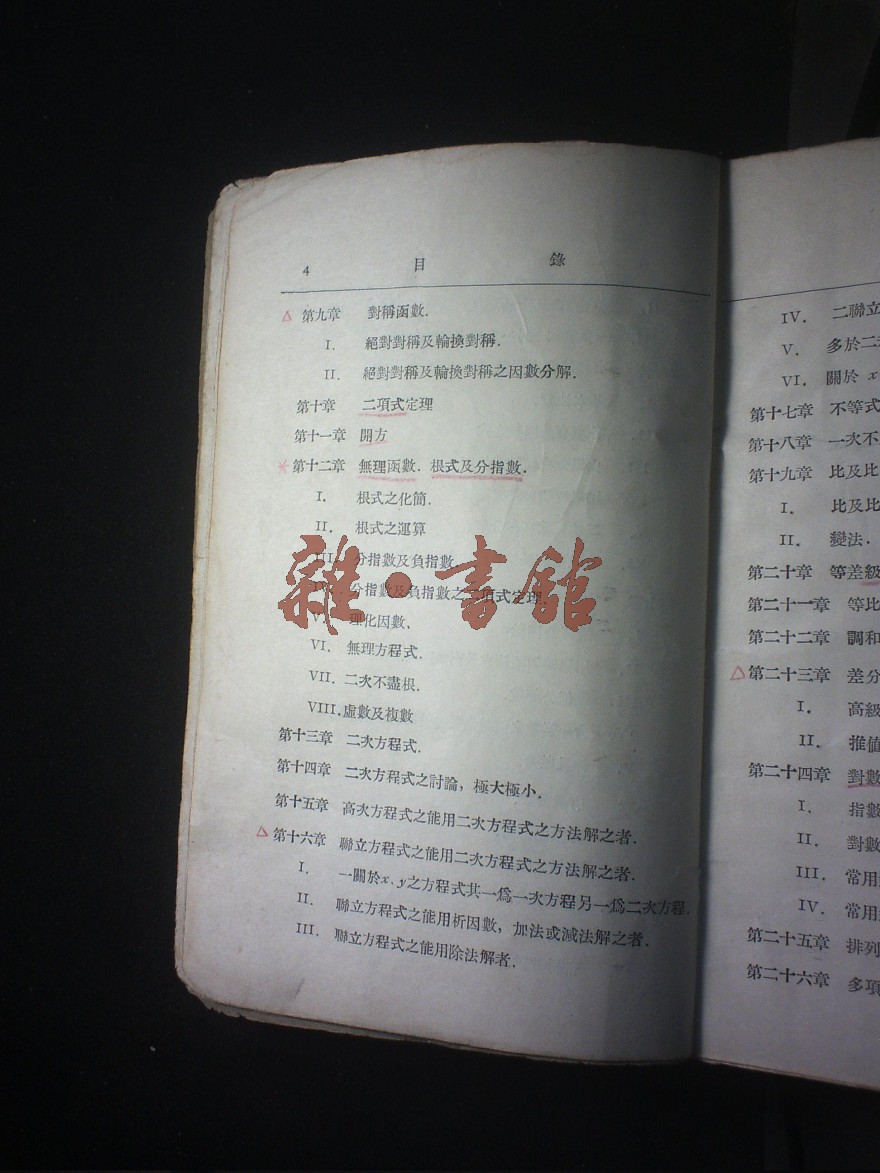 4 目 錄
△ 第九章 對稱函數.
I. 絕對對稱及輪換對稱.
II. 絕對對稱及輪換對稱之因數分解.
第十章 二項式定理
第十一章 開方
第十二章 無理函數. 根式及分指數.
I. 根式之化簡.
II. 根式之運算
III. 分指數及負指數.
分指數及負指數之二項式定理.
V. 理化因數.
VI. 無理方程式.
VII. 二次不盡根.
VIII. 虛數及複數
第十三章 二次方程式.
第十四章 二次方程式之討論, 極大極小.
第十五章 高次方程式之能用二次方程式之方法解之者.
△ 第十六章 聯立方程式之能用二次方程式之方法解之者.
I. 一關於x. y之方程式其一爲一次方程另一爲二次方程.
II. 聯立方程式之能用析因數, 加法或減法解之者.
III. 聯立方程式之能用除法解者.
雜·書館
IV. 二聯立
V. 多於二
VI. 關於 x
第十七章 不等式
第十八章 一次不
第十九章 比及比
I. 比及比
II. 變法.
第二十章 等差級
第二十一章 等比
第二十二章 調和
△ 第二十三章 差分
I. 高級
II. 推值
第二十四章 對數
I. 指數
II. 對數
III. 常用
IV. 常用
第二十五章 排列
第二十六章 多項